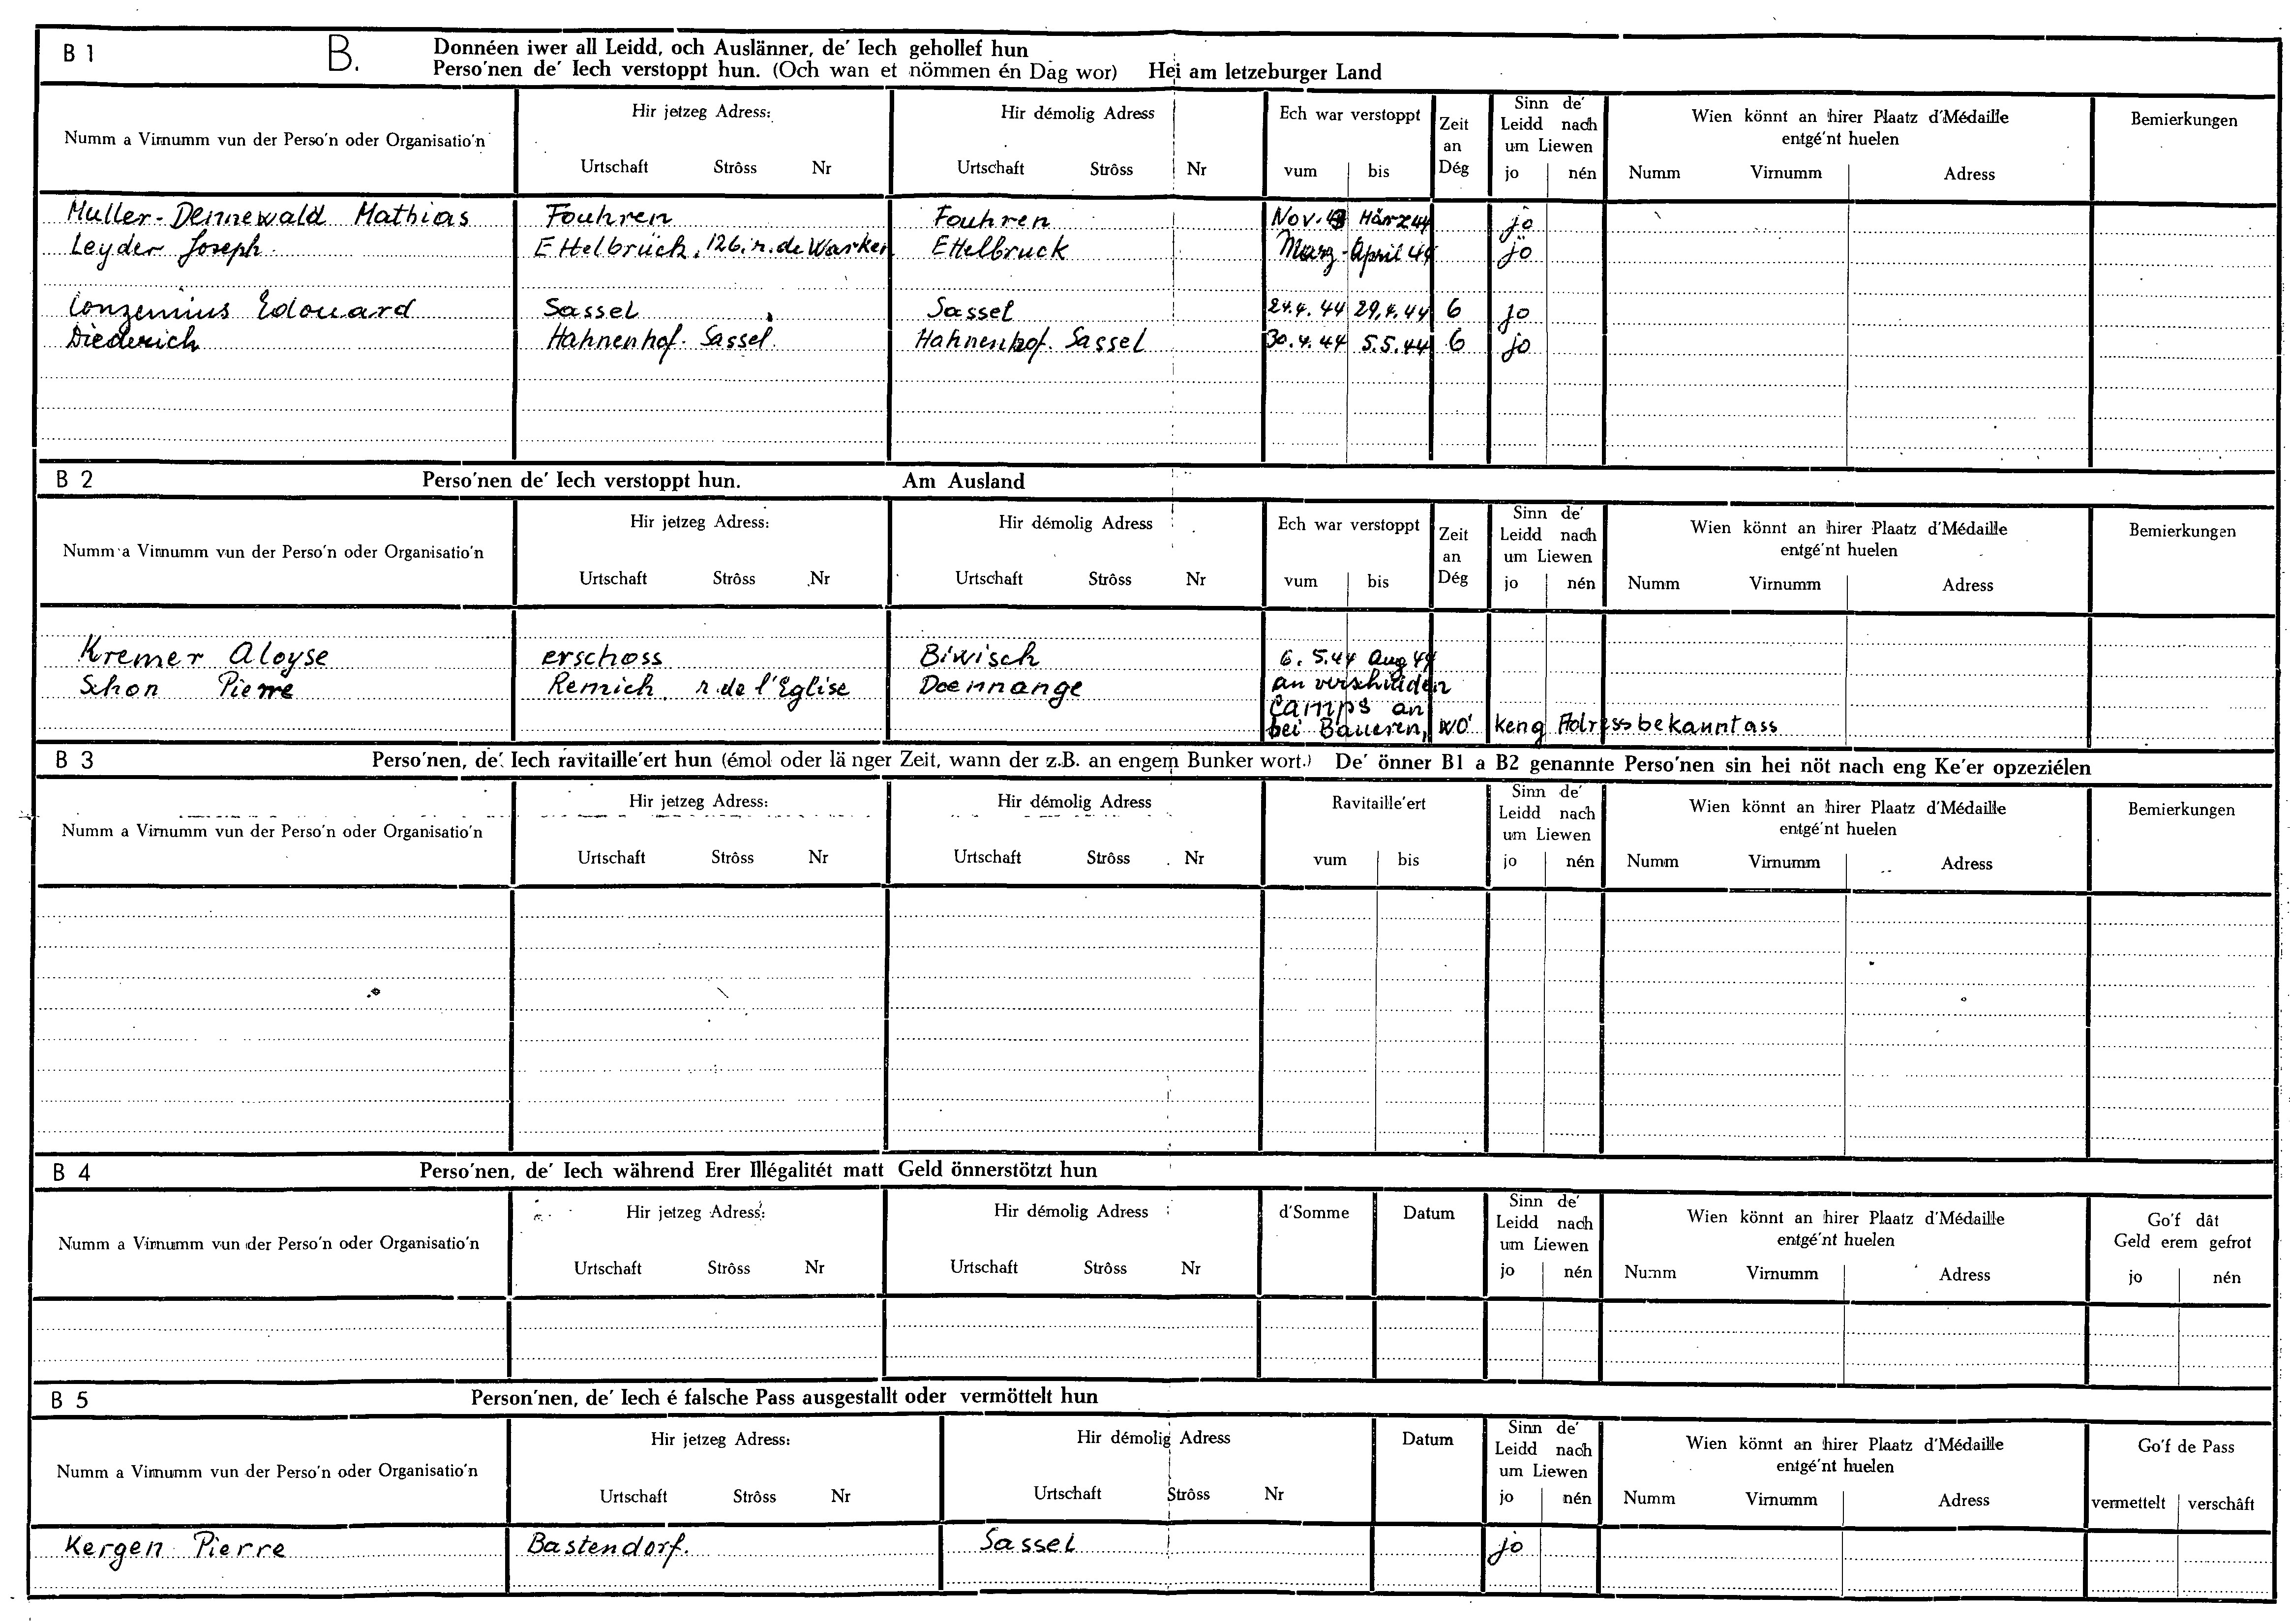 B 1 B. Donnéen iwer all Leidd, och Auslänner, de' Iech gehollef hun
Perso'nen de' Iech verstoppt hun. (Och wan et nömmen én Dag wor) Hei am letzeburger Land
Numm a Virnumm vun der Perso'n oder Organisatio'n
Hir jetzeg Adress:
Urtschaft Strôss Nr
Hir démolig Adress
Urtschaft Strôss Nr
Ech war verstoppt
vum bis
Zeit
an
Dég
Sinn de'
Leidd nach
um Liewen
jo nén
Wien könnt an hirer Plaatz d'Médaille
entgé'nt huelen
Numm Virnumm Adress
Bemierkungen
Muller-Dennewald Mathias Fouhren Fouhren Nov. 43 März 44 jo
Leyder Joseph Ettelbrück, 126. r. de Warken Ettelbruck Marz - April 44 jo
Conzemius Edouard Sassel Sassel 24.4.44 29.4.44 6 jo
Diederich Hahnenhof. Sassel Hahnenhof. Sassel 30.4.44 5.5.44 6 jo
B 2 Perso'nen de' Iech verstoppt hun. Am Ausland
Numm a Virnumm vun der Perso'n oder Organisatio'n
Hir jetzeg Adress:
Urtschaft Strôss Nr
Hir démolig Adress
Urtschaft Strôss Nr
Ech war verstoppt
vum bis
Zeit
an
Dég
Sinn de'
Leidd nach
um Liewen
jo nén
Wien könnt an hirer Plaatz d'Médaille
entgé'nt huelen
Numm Virnumm Adress
Bemierkungen
Kremer Aloyse erschoss Biwisch 6. 5.44 Aug 44
Schon Pierre Remich r. de l'Eglise Doennange an verschidden
Camps an
bei Baueren, wo' keng Adress bekannt ass
B 3 Perso'nen, de' Iech ravitaille'ert hun (émol oder länger Zeit, wann der z.B. an engem Bunker wort.) De' önner B1 a B2 genannte Perso'nen sin hei nöt nach eng Ke'er opzeziélen
Numm a Virnumm vun der Perso'n oder Organisatio'n
Hir jetzeg Adress:
Urtschaft Strôss Nr
Hir démolig Adress
Urtschaft Strôss Nr
Ravitaille'ert
vum bis
Sinn de'
Leidd nach
um Liewen
jo nén
Wien könnt an hirer Plaatz d'Médaille
entgé'nt huelen
Numm Virnumm Adress
Bemierkungen
B 4 Perso'nen, de' Iech während Erer Illégalitét matt Geld önnerstötzt hun
Numm a Virnumm vun der Perso'n oder Organisatio'n
Hir jetzeg Adress:
Urtschaft Strôss Nr
Hir démolig Adress
Urtschaft Strôss Nr
d'Somme
Datum
Sinn de'
Leidd nach
um Liewen
jo nén
Wien könnt an hirer Plaatz d'Médaille
entgé'nt huelen
Numm Virnumm Adress
Go'f dât
Geld erem gefrot
jo nén
B 5 Person'nen, de' Iech é falsche Pass ausgestallt oder vermöttelt hun
Numm a Virnumm vun der Perso'n oder Organisatio'n
Hir jetzeg Adress:
Urtschaft Strôss Nr
Hir démolig Adress
Urtschaft Strôss Nr
Datum
Sinn de'
Leidd nach
um Liewen
jo nén
Wien könnt an hirer Plaatz d'Médaille
entgé'nt huelen
Numm Virnumm Adress
Go'f de Pass
vermettelt verschâft
Kergen Pierre Bastendorf. Sassel jo